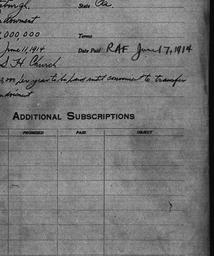 sburgh. State Pa.
dowment
0,000,000 Terms
June 11, 1914 Date Paid RAF June 17, 1914
S. H. Church
per year to be paid until convenient to transfer
ndowment
ADDITIONAL SUBSCRIPTIONS
PROMISED PAID OBJECT